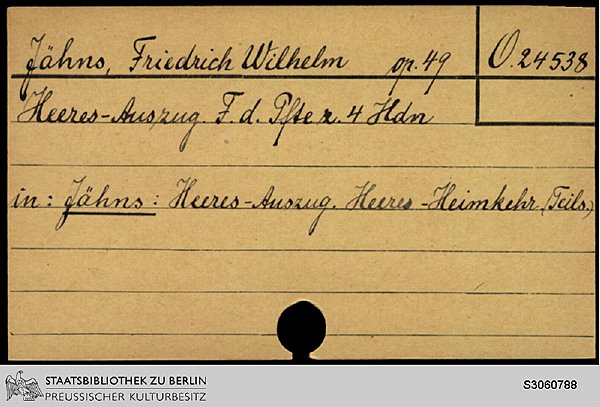 Jähns, Friedrich Wilhelm op. 49 O. 24538
Heeres-Auszug F. d. Pfte z. 4 Hdn
in: Jähns: Heeres-Auszug. Heeres-Heimkehr. (Teils.)
STAATSBIBLIOTHEK ZU BERLIN
PREUSSISCHER KULTURBESITZ
S3060788